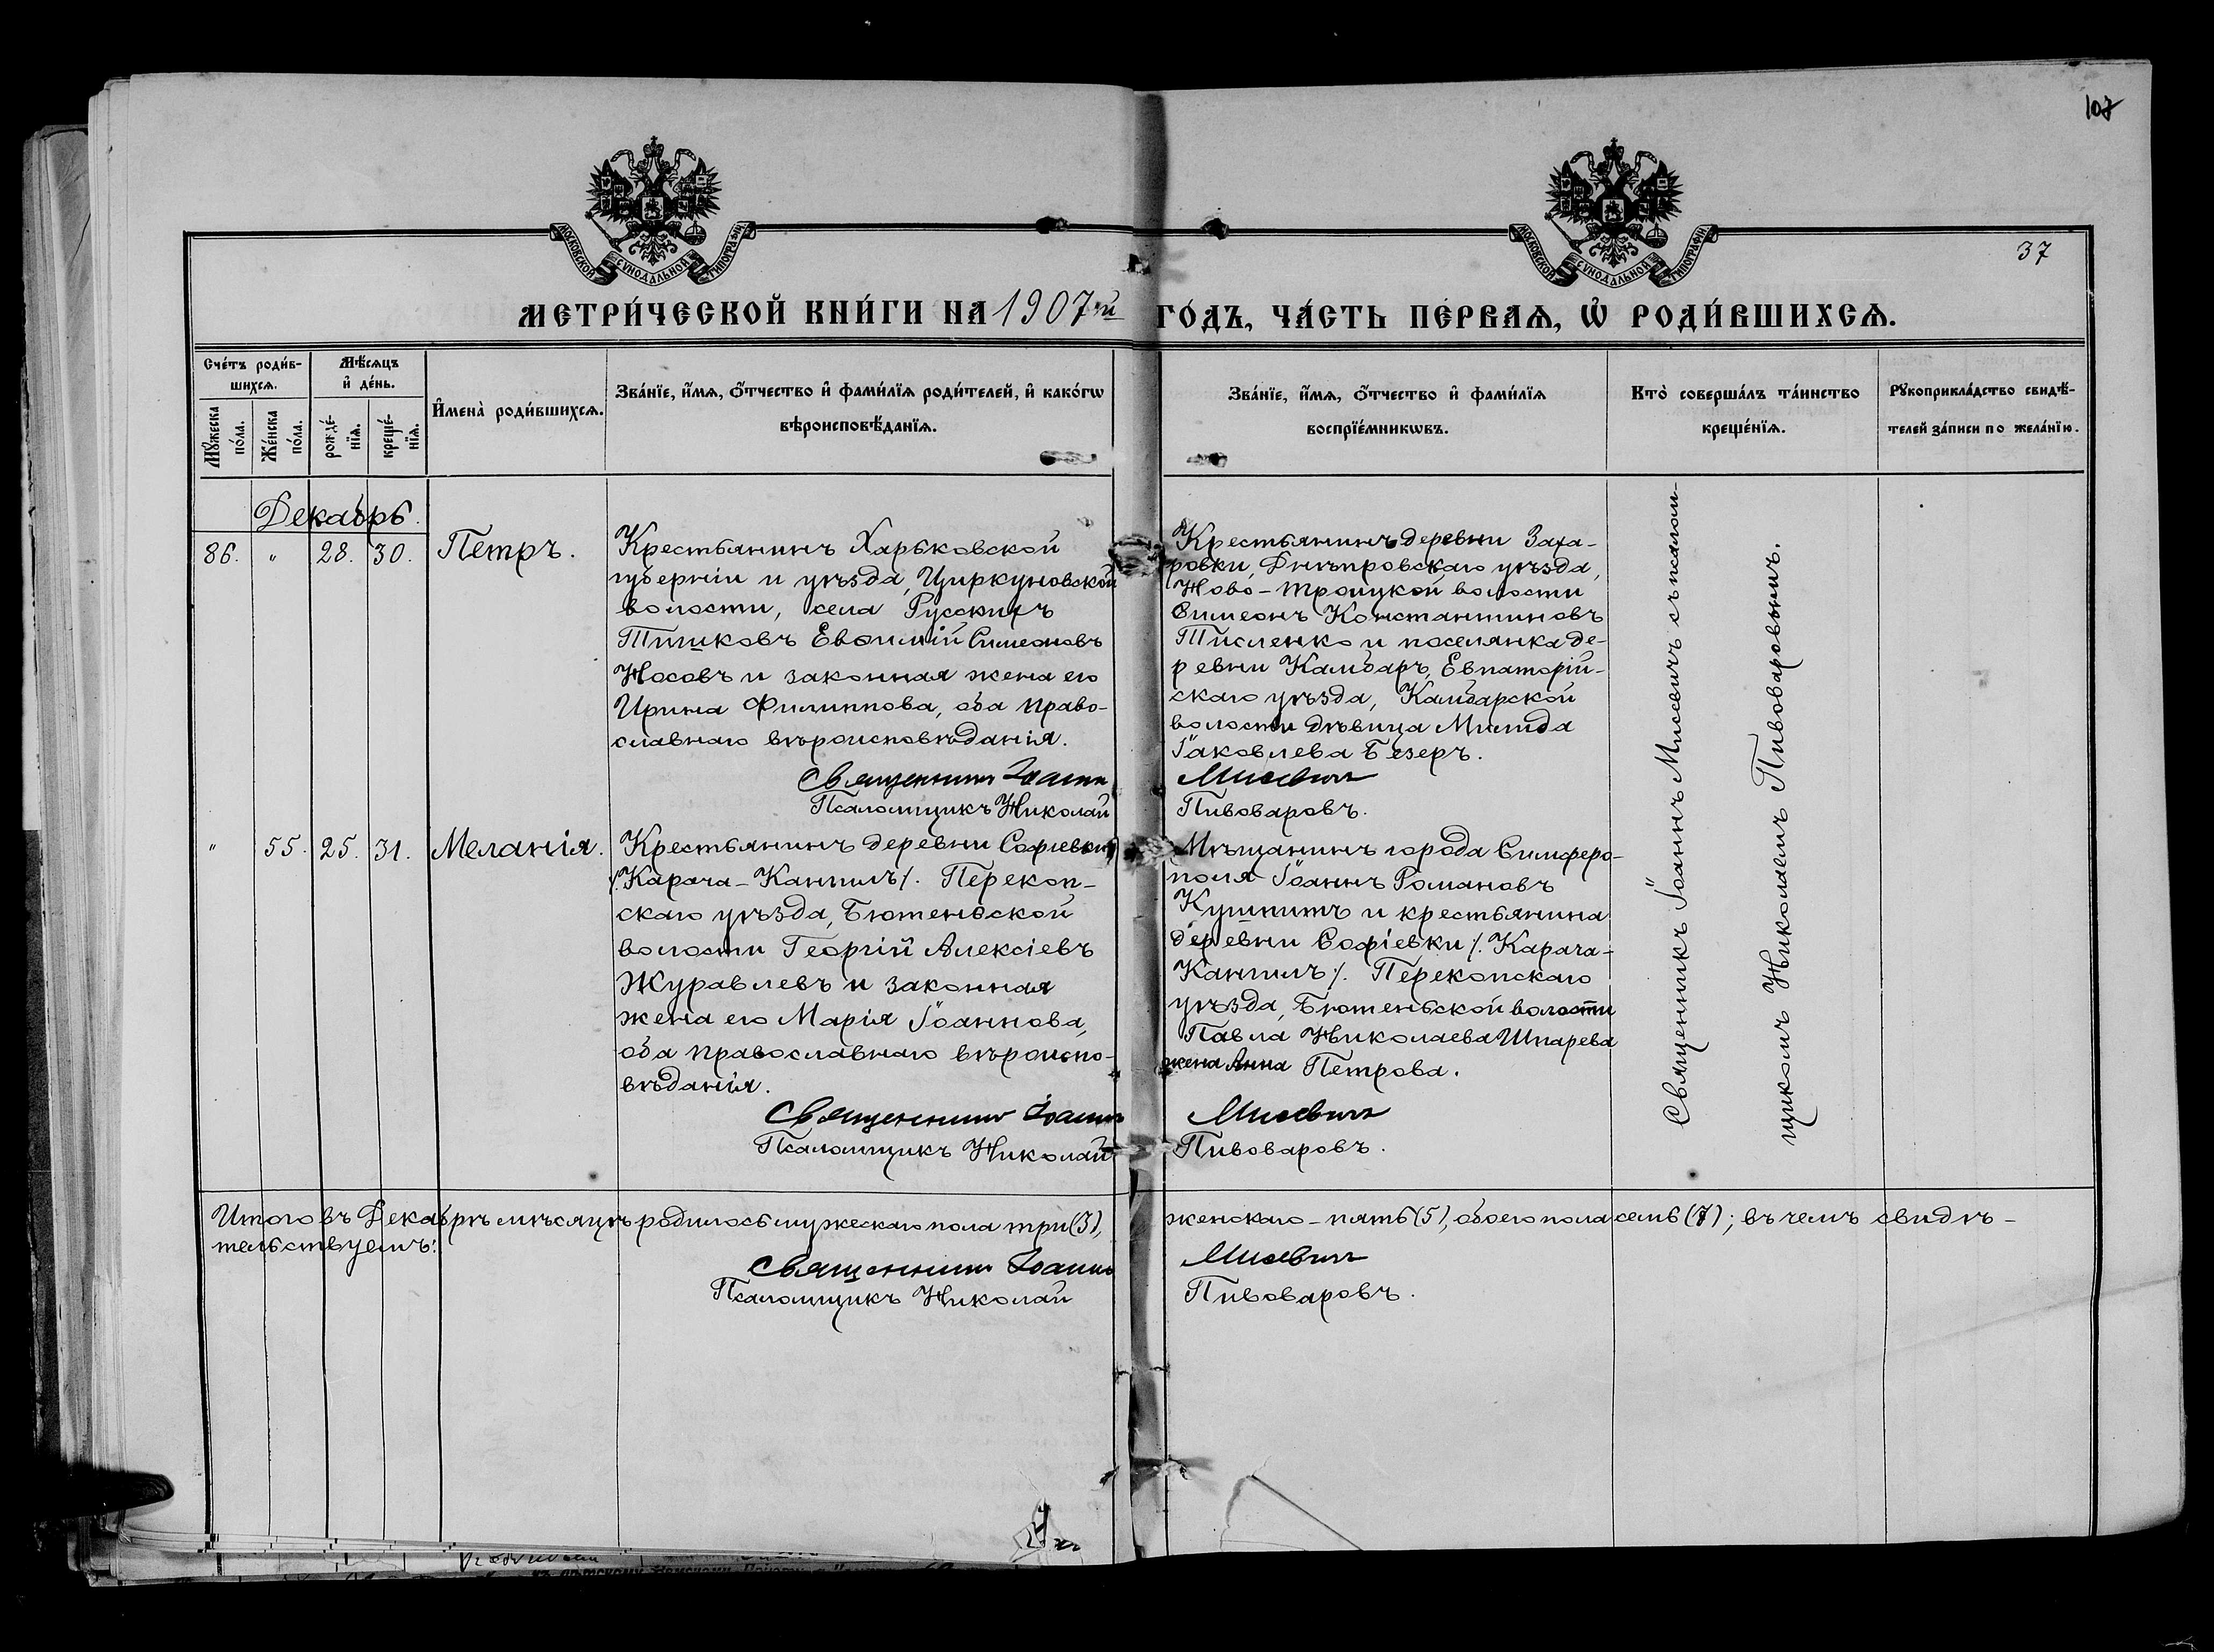 107
37
МОСКОВСКОЙ СѴНОДАЛЬНОЙ ТИПОГРАФІИ
МОСКОВСКОЙ СѴНОДАЛЬНОЙ ТИПОГРАФІИ
МЕТРИ́ЧЕСКОЙ КНИ́ГИ НА 1907 й ГО́ДЪ, ЧА́СТЬ ПЕ́РВАѦ, Ѽ РОДИ́ВШИХСѦ.
Сче́тъ роди́в-
шихсѧ.
Мѣ́сѧцъ
и҆ де́нь.
Мꙋ́жеска
по́ла.
Же́нска
по́ла.
рожде́-
нїѧ.
креще́-
нїѧ.
И҆мена̀ роди́вшихсѧ.
Зва́нїе, и҆́мѧ, ѻ҆́тчество и҆ фами́лїѧ роди́телей, и҆ како́гѡ
вѣроисповѣ́данїѧ.
Зва́нїе, и҆́мѧ, ѻ҆́тчество и҆ фами́лїѧ
воспрїе́мникѡвъ.
Кто̀ соверша́лъ та́инство
креще́нїѧ.
Рꙋкоприкла́дство свидѣ́-
телей за́писи по жела́нїю.
Декабрь.
86. " 28. 30. Петръ.
Крестьянинъ Харьковской
губерніи и уѣзда, Циркуновской
волости, села Русскихъ
Тишковъ Евѳимій Симеоновъ
Носовъ и законная жена его
Ирина Филиппова, оба право-
славнаго вѣроисповѣданія.
Священникъ Іоаннъ
Псаломщикъ Николай
Крестьянинъ деревни Заха-
ровки, Днѣпровскаго уѣзда,
Ново-Троицкой волости
Симеонъ Константиновъ
Тисленко и поселянка де-
ревни Камбаръ, Евпаторій-
скаго уѣзда, Камбарской
волости дѣвица Милида
Іаковлева Безеръ.
Мисевичъ
Пивоваровъ.
" 55. 25. 31. Меланія.
Крестьянинъ деревни Софіевки
/. Карача-Кангилъ /. Перекоп-
скаго уѣзда, Бютеньской
волости Георгій Алексіевъ
Журавлевъ и законная
жена его Марія Іоаннова,
оба православнаго вѣроиспо-
вѣданія.
Священникъ Іоаннъ
Псаломщикъ Николай
Мѣщанинъ города Симферо-
поля Іоаннъ Романовъ
и крестьянина
деревни Софіевки /. Карача-
Кангилъ /. Перекопскаго
уѣзда, Бютеньской волости
Павла Николаева Шпарева
жена Анна Петрова.
Мисевичъ
Пивоваровъ.
Священникъ Іоаннъ Мисевичъ съ псалом-
щикомъ Николаемъ Пивоваровымъ.
Итого въ Декабрѣ мѣсяцѣ родилось мужескаго пола три (3), женскаго - пять (5), обоего пола семь (7); въ чемъ свидѣ-
тельствуемъ:
Священникъ Іоаннъ Мисевичъ
Псаломщикъ Николай Пивоваровъ.